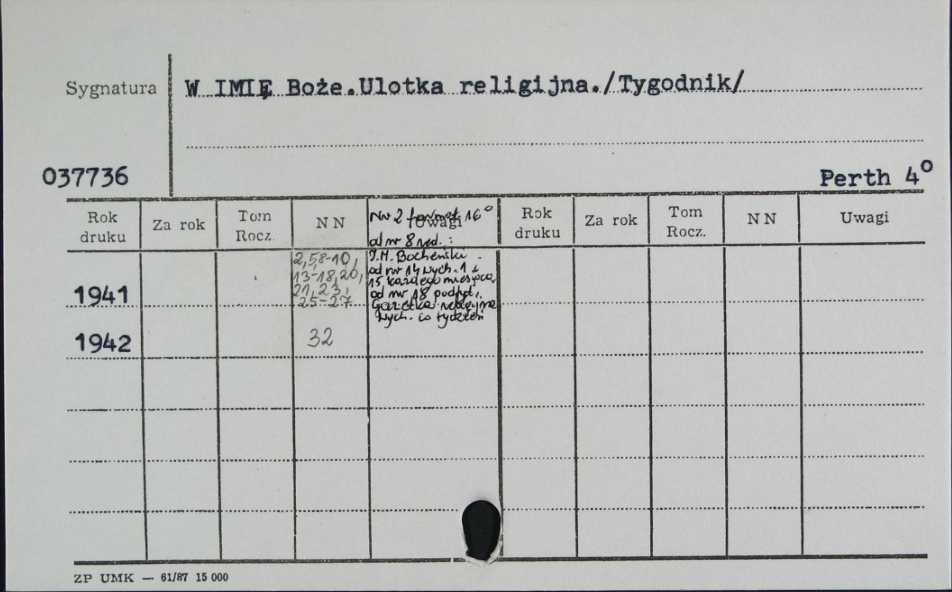 Sygnatura W IMIĘ Boże.Ulotka religijna./Tygodnik/
037736 Perth 4°
Rok druku Za rok Tom Rocz. NN Uwagi Rok druku Za rok Tom Rocz. NN Uwagi
Nr 2 format 16°
od nr 8 red. :
2,58-10, J.M. Bocheński.
13-18,20, od nr 14 wych. 1 i
21,23, 15 każdego miesiąca,
1941 25-27 od nr 18 podtyt.
Gazetka religijna
wych. co tydzień
1942 32
ZP UMK — 61/87 15 000